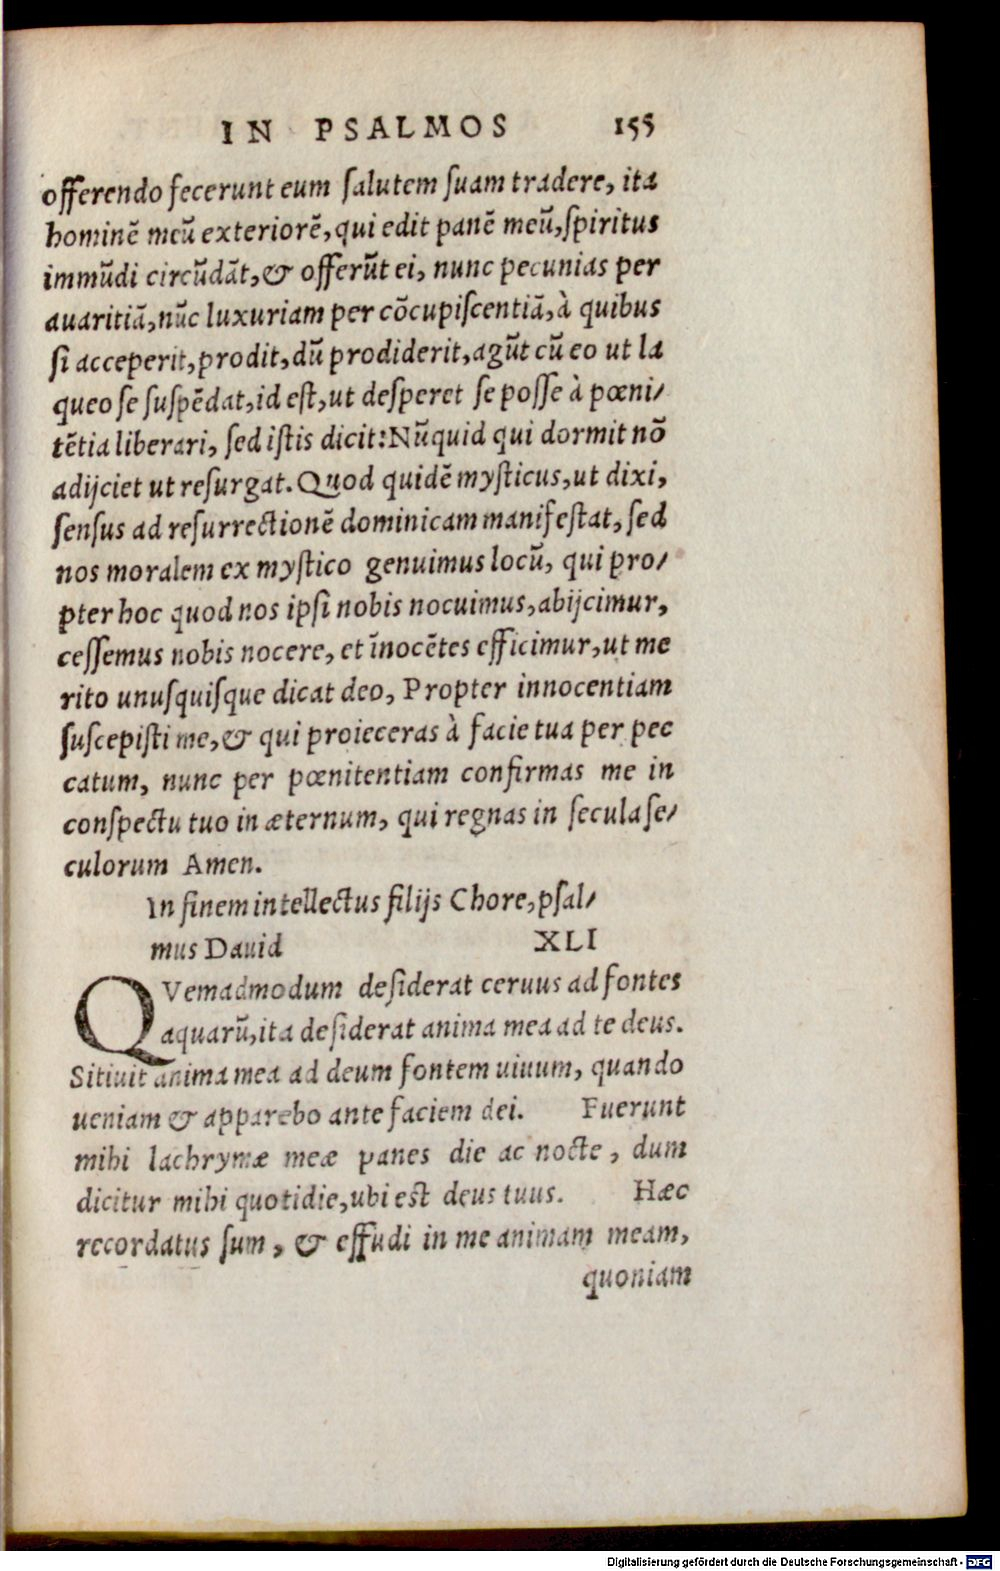 IN PSALMOS 155
offerendo fecerunt eum ſalutem ſuam tradere, ita
hominē meū exteriorē, qui edit panē meū, ſpiritus
immūdi circūdāt, & offerūt ei, nunc pecunias per
auaritiā, nūc luxuriam per cōcupiſcentiā, à quibus
ſi acceperit, prodit, dū prodiderit, agūt cū eo ut la
queo ſe ſuſpēdat, id eſt, ut deſperet ſe poſſe à pœni/
tētia liberari, ſed iſtis dicit: Nūquid qui dormit nō
adijciet ut reſurgat. Quod quidē myſticus, ut dixi,
ſenſus ad reſurrectionē dominicam manifeſtat, ſed
nos moralem ex myſtico genuimus locū, qui pro/
pter hoc quod nos ipſi nobis nocuimus, abijcimur,
ceſſemus nobis nocere, et īnocētes efficimur, ut me
rito unuſquiſque dicat deo, Propter innocentiam
ſuſcepiſti me, & qui proieceras à facie tua per pec
catum, nunc per pœnitentiam confirmas me in
conſpectu tuo in æternum, qui regnas in ſecula ſe/
culorum Amen.
In finem intellectus filijs Chore, pſal/
mus Dauid XLI
QVemadmodum deſiderat ceruus ad fontes
aquarū, ita deſiderat anima mea ad te deus.
Sitiuit anima mea ad deum fontem uiuum, quando
ueniam & apparebo ante faciem dei. Fuerunt
mihi lachrymæ meæ panes die ac nocte, dum
dicitur mihi quotidie, ubi eſt deus tuus. Hæc
recordatus ſum, & effudi in me animam meam,
quoniam
Digitalisierung gefördert durch die Deutsche Forschungsgemeinschaft - DFG